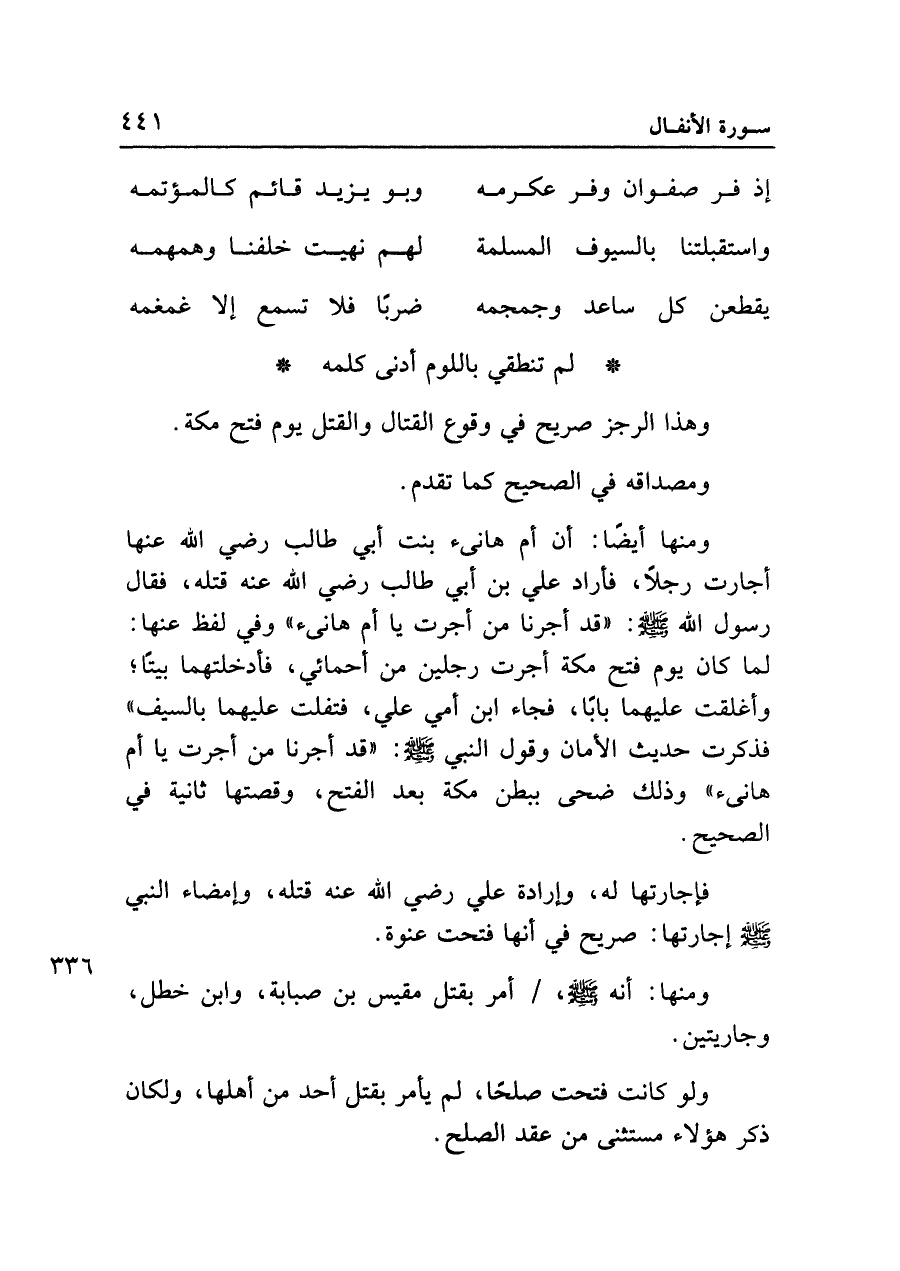 سورة الأنفال ٤٤١
إذ فر صفوان وفر عكرمه وبو يزيد قائم كالمؤتمه
واستقبلتنا بالسيوف المسلمة لهم نهيت خلفنا وهمهمه
يقطعن كل ساعد وجمجمه ضربًا فلا تسمع إلا غمغمه
* لم تنطقي باللوم أدنى كلمه *
وهذا الرجز صريح في وقوع القتال والقتل يوم فتح مكة.
ومصداقه في الصحيح كما تقدم.
ومنها أيضًا: أن أم هانىء بنت أبي طالب رضي الله عنها
أجارت رجلاً، فأراد علي بن أبي طالب رضي الله عنه قتله، فقال
رسول الله ﷺ: «قد أجرنا من أجرت يا أم هانىء» وفي لفظ عنها:
لما كان يوم فتح مكة أجرت رجلين من أحمائي، فأدخلتهما بيتًا؛
وأغلقت عليهما بابًا، فجاء ابن أمي علي، فتفلت عليهما بالسيف»
فذكرت حديث الأمان وقول النبي ﷺ: «قد أجرنا من أجرت يا أم
هانىء» وذلك ضحى ببطن مكة بعد الفتح، وقصتها ثانية في
الصحيح.
فإجارتها له، وإرادة علي رضي الله عنه قتله، وإمضاء النبي
ﷺ إجارتها: صريح في أنها فتحت عنوة.
٣٣٦
ومنها: أنه ﷺ، / أمر بقتل مقيس بن صبابة، وابن خطل،
وجاريتين.
ولو كانت فتحت صلحًا، لم يأمر بقتل أحد من أهلها، ولكان
ذكر هؤلاء مستثنى من عقد الصلح.